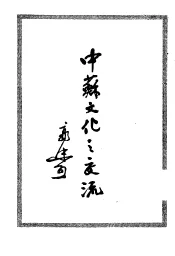 中蘇文化之交流